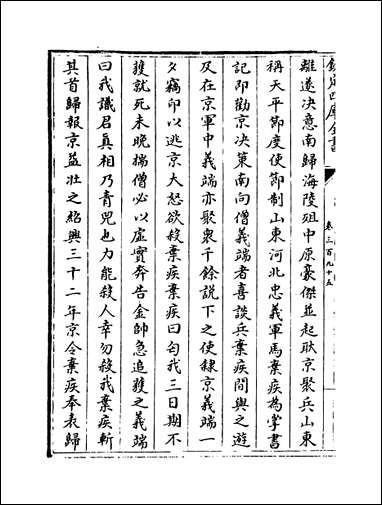 欽定四庫全書
卷三百九十五
離遂決意南歸海陵殂中原豪傑並起耿京聚兵山東
稱天平節度使節制山東河北忠義軍馬棄疾為掌書
記即勸京決策南向僧義端者喜談兵棄疾間與之遊
及在京軍中義端亦聚衆千餘說下之使隸京義端一
夕竊印以逃京大怒欲殺棄疾棄疾曰匄我三日期不
獲就死未晚揣僧必以虛實奔告金帥急追獲之義端
曰我識君真相乃青兕也力能殺人幸勿殺我棄疾斬
其首歸報京益壯之紹興三十二年京令棄疾奉表歸